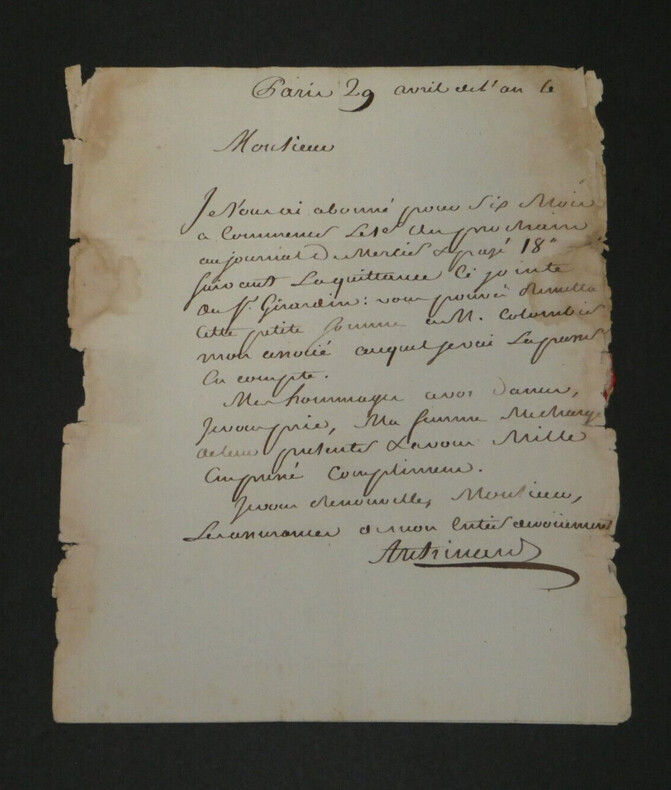 Paris 29 avril de l'an 6
Monsieur
Je vous ai abonné pour Six Mois
a Commencer Le 1er du prochain
au journal De Mercier & payé 18#
suivant La quittance Ci jointe
du Sr. Girardin: vous pouvés remettre
Cette petite Somme a M. Colombier
mon associé auquel je vai La passer
En compte.
Mes hommages a vos Dames,
Je vous prie, Ma femme Me charge
de leur presenter & a vous Mille
Empressé Compliment.
Je vous Renouvelle, Monsieur,
Les assurances de mon Entier devoüement